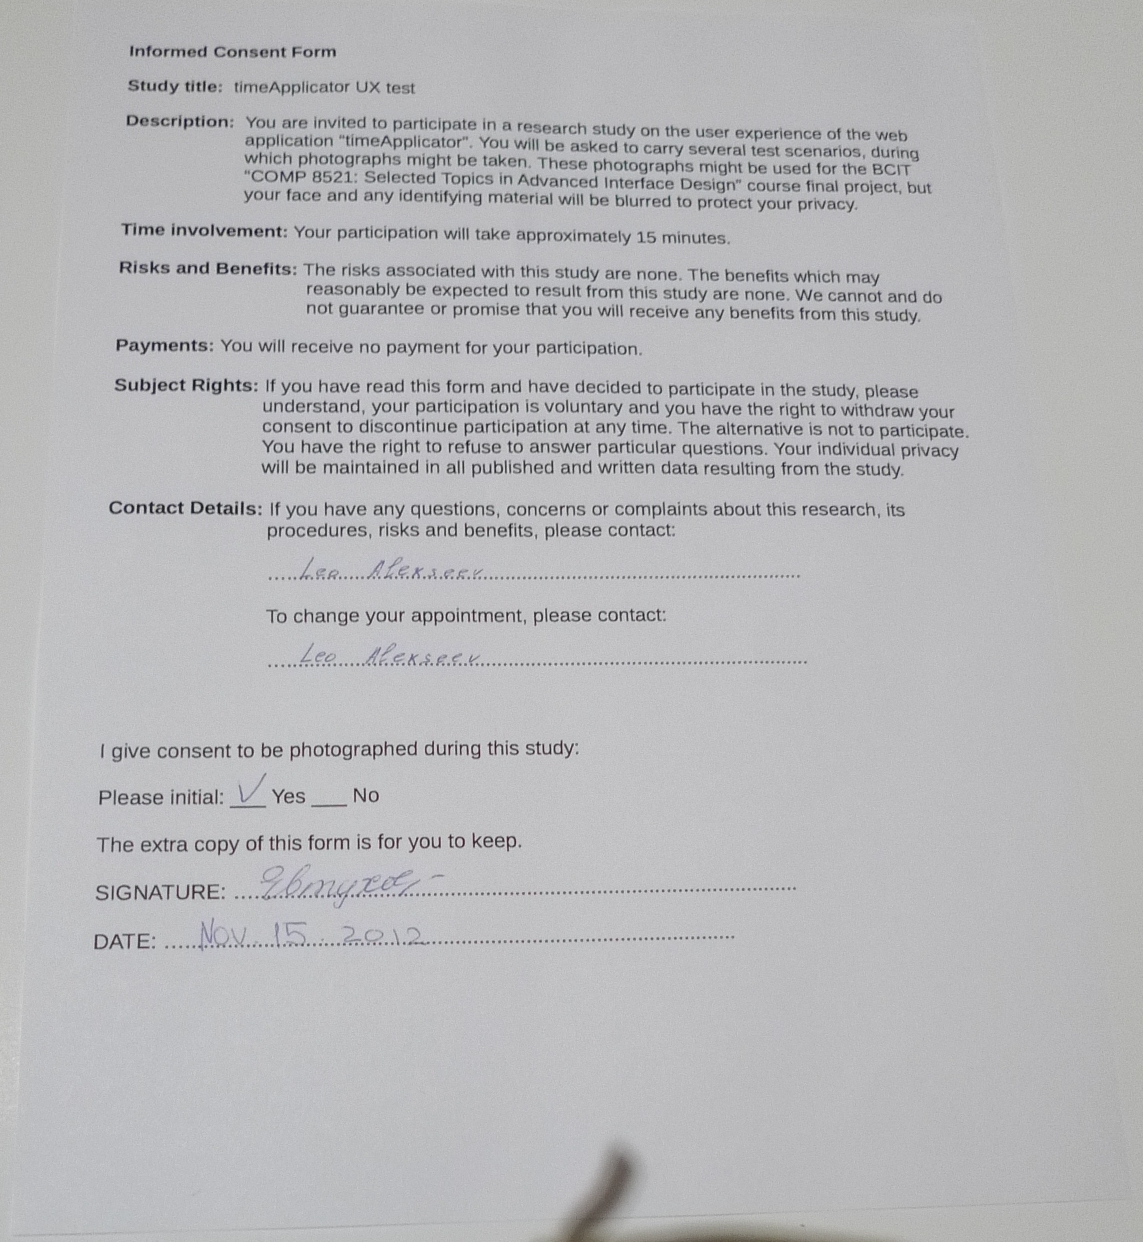 Informed Consent Form
Study title: timeApplicator UX test
Description: You are invited to participate in a research study on the user experience of the web
application "timeApplicator". You will be asked to carry several test scenarios, during
which photographs might be taken. These photographs might be used for the BCIT
"COMP 8521: Selected Topics in Advanced Interface Design" course final project, but
your face and any identifying material will be blurred to protect your privacy.
Time involvement: Your participation will take approximately 15 minutes.
Risks and Benefits: The risks associated with this study are none. The benefits which may
reasonably be expected to result from this study are none. We cannot and do
not guarantee or promise that you will receive any benefits from this study.
Payments: You will receive no payment for your participation.
Subject Rights: If you have read this form and have decided to participate in the study, please
understand, your participation is voluntary and you have the right to withdraw your
consent to discontinue participation at any time. The alternative is not to participate.
You have the right to refuse to answer particular questions. Your individual privacy
will be maintained in all published and written data resulting from the study.
Contact Details: If you have any questions, concerns or complaints about this research, its
procedures, risks and benefits, please contact:
Leo Alekseev
To change your appointment, please contact:
Leo Alekseev
I give consent to be photographed during this study:
Please initial: V Yes ___ No
The extra copy of this form is for you to keep.
SIGNATURE:
DATE: Nov. 15 2012